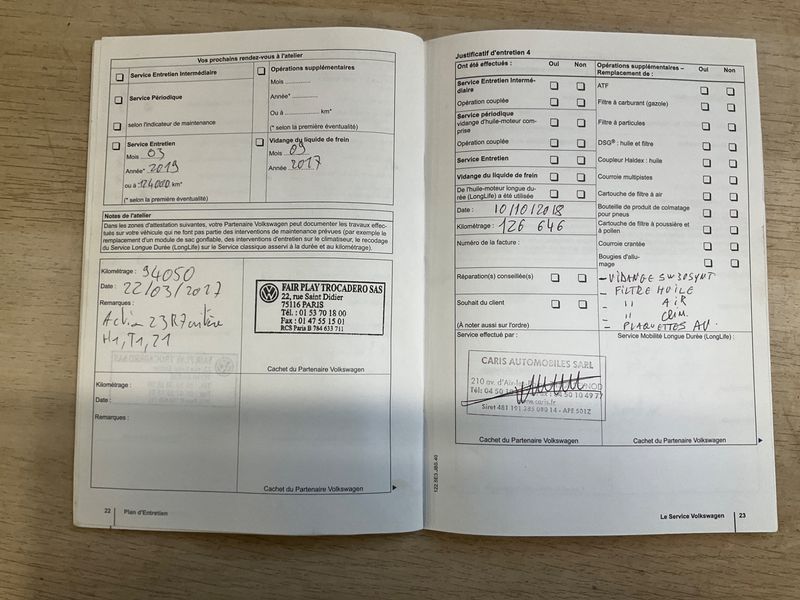 Vos prochains rendez-vous à l'atelier
Service Entretien Intermédiaire
Service Périodique
selon l'indicateur de maintenance
Opérations supplémentaires
Mois
Année*
Ou à km*
(* selon la première éventualité)
Service Entretien
Mois 03
Année* 2019
ou à 124000 km*
(* selon la première éventualité)
Vidange du liquide de frein
Mois 09
Année 2017
Notes de l'atelier
Dans les zones d'attestation suivantes, votre Partenaire Volkswagen peut documenter les travaux effec-
tués sur votre véhicule qui ne font pas partie des interventions de maintenance prévues (par exemple le
remplacement d'un module de sac gonflable, des interventions d'entretien sur le climatiseur, le recodage
du Service Longue Durée (LongLife) sur le Service classique asservi à la durée et au kilométrage).
Kilométrage : 94050
Date : 22/03/2017
Remarques :
23R7
FAIR PLAY TROCADERO SAS
22, rue Saint Didier
75116 PARIS
Tél. : 01 53 70 18 00
Fax : 01 47 55 15 01
RCS Paris B 784 633 711
Cachet du Partenaire Volkswagen
Kilométrage :
Date :
Remarques :
Cachet du Partenaire Volkswagen
22 Plan d'Entretien
Justificatif d'entretien 4
Ont été effectués : Oui Non
Service Entretien Intermé-
diaire
Opération couplée
Service périodique
vidange d'huile-moteur com-
prise
Opération couplée
Service Entretien
Vidange du liquide de frein
De l'huile-moteur longue du-
rée (LongLife) a été utilisée
Date : 10/10/2018
Kilométrage : 126 646
Numéro de la facture :
Réparation(s) conseillée(s)
Souhait du client
(À noter aussi sur l'ordre)
Opérations supplémentaires – Oui Non
Remplacement de :
ATF
Filtre à carburant (gazole)
Filtre à particules
DSG® : huile et filtre
Coupleur Haldex : huile
Courroie multipistes
Cartouche de filtre à air
Bouteille de produit de colmatage
pour pneus
Cartouche de filtre à poussière et
à pollen
Courroie crantée
Bougies d'allu-
mage
- VIDANGE 5W30SYNT
- FILTRE HUILE
- " AIR
- "
- PLAQUETTES AV.
Service effectué par :
CARIS AUTOMOBILES SARL
210 av.
Tél: 04 50
04 50 10 49 77
www.caris.fr
- APE 501Z
Cachet du Partenaire Volkswagen
Service Mobilité Longue Durée (LongLife) :
Cachet du Partenaire Volkswagen
122.5E3.JBS.40
Le Service Volkswagen 23